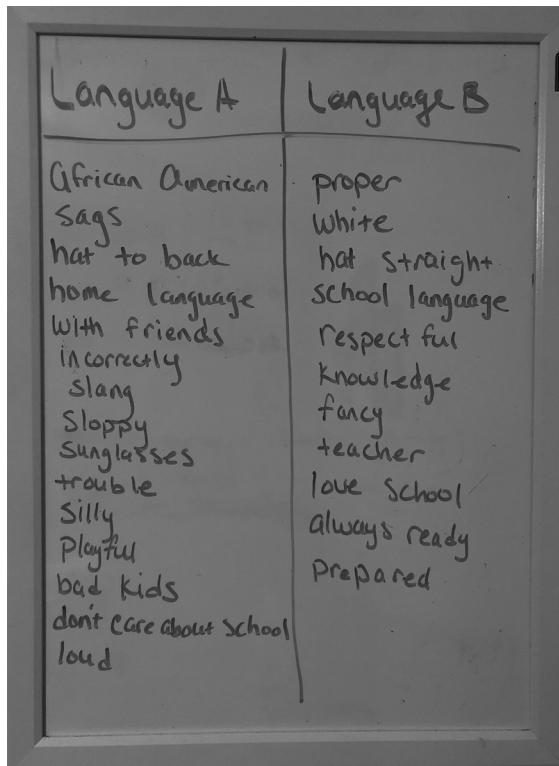 Language A
African American
sags
hat to back
home language
with friends
incorrectly
slang
Sloppy
sunglasses
trouble
silly
Playful
bad kids
don't care about school
loud
Language B
proper
white
hat straight
school language
respectful
knowledge
fancy
teacher
love school
always ready
prepared